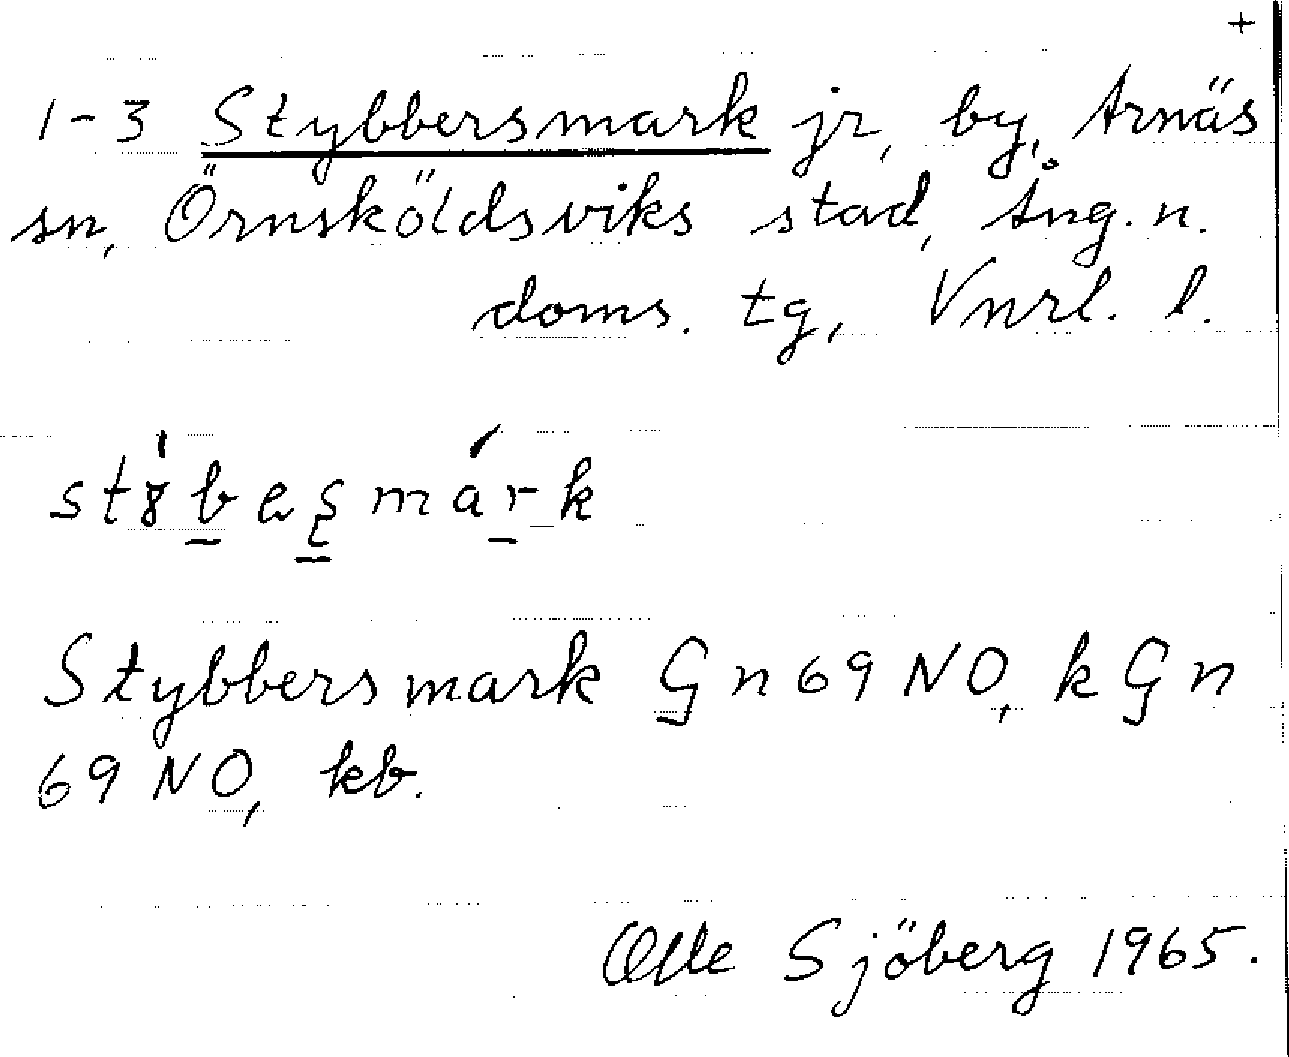 +
1-3 Stybbersmark jr, by, Arnäs
sn, Örnsköldsviks stad, Ång. n.
doms. tg, Vnrl. l.
Stybbersmark Gn69NO, k Gn
69NO, kb.
Olle Sjöberg 1965.